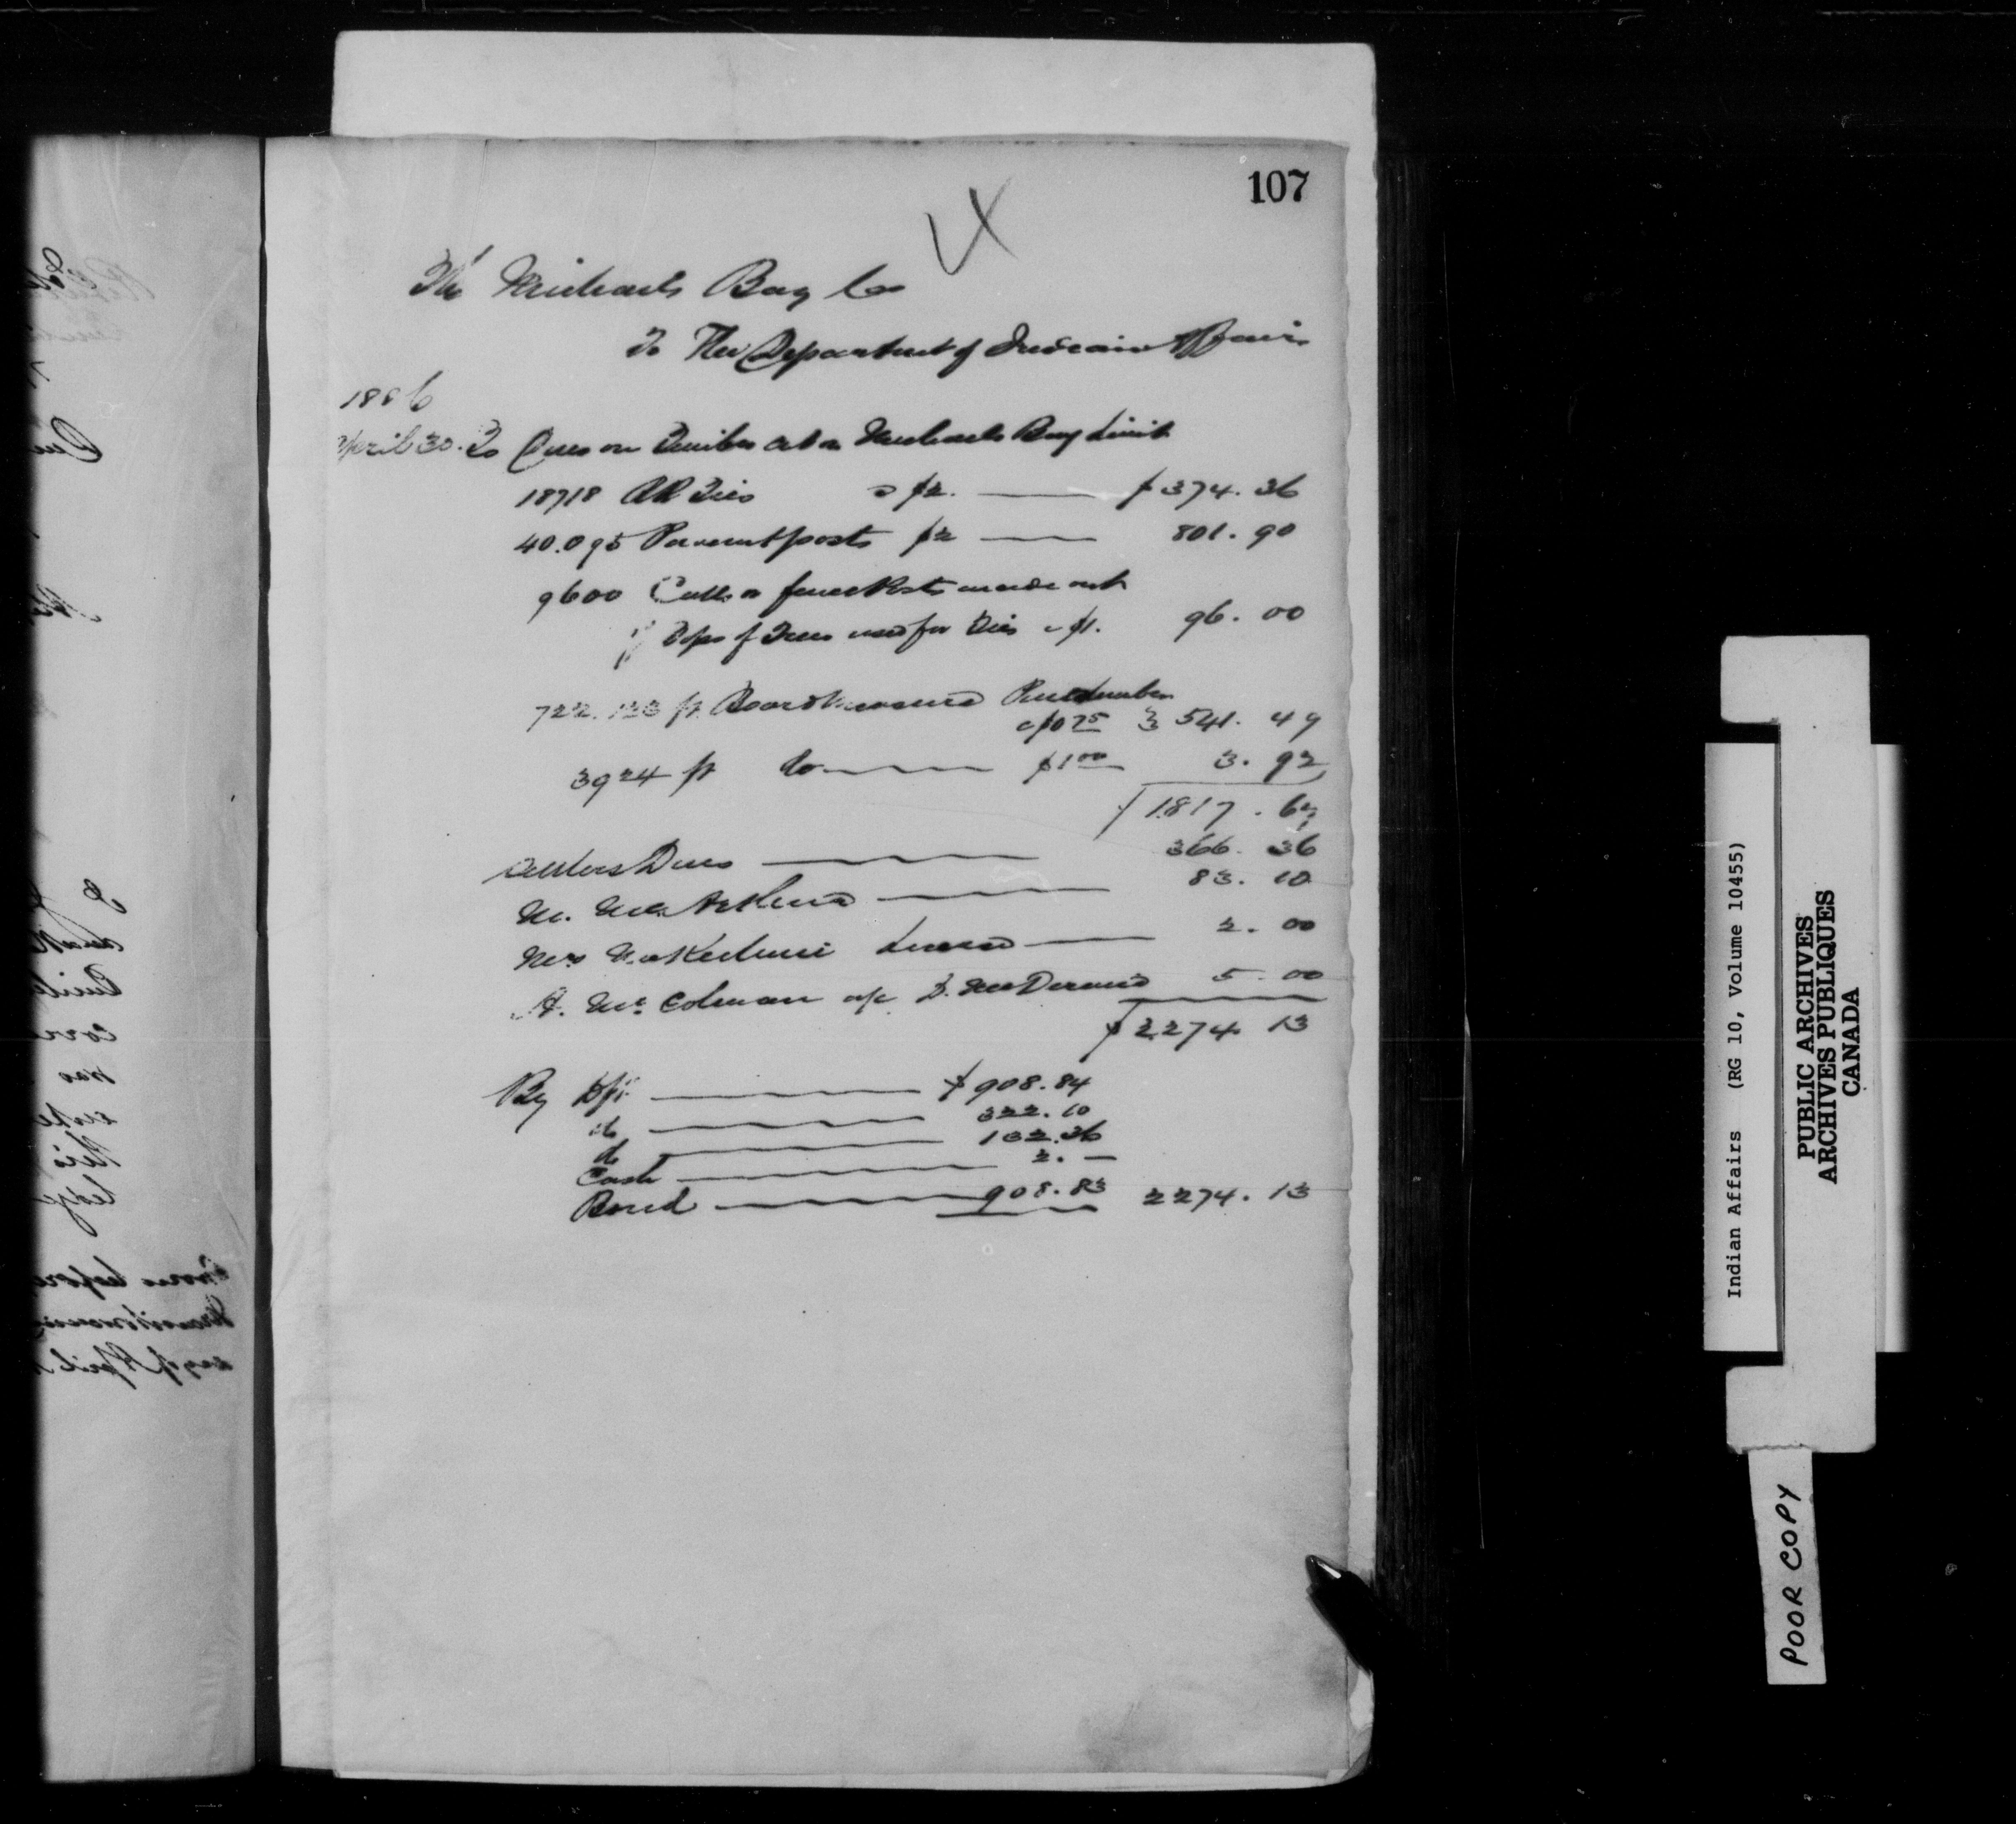 107
The Michaels Bay Co
To The Department of Indian Affairs
1886
April 30. To Dues on Timber cut on Michaels Bay Limit
18718 RR Ties @ $2. $374.36
40.095 Pavement posts $2 801.90
9600 Culls or fence Posts made out
of Tops of Trees used for Ties @ $1. 96.00
722.123 ft Board measure Pine lumber
@ $0 75 541.49
3924 ft do $1 00 3.92
$1817.67
Settlers Dues 366.36
83.10
License 2.00
Coleman a/c D. McDermid 5.00
$2274.13
By Dft $908.84
do 322.10
do 132.36
Cash 2.—
Bond 908.83 2274.13
Indian Affairs (RG 10, Volume 10455)
PUBLIC ARCHIVES
ARCHIVES PUBLIQUES
CANADA
POOR COPY